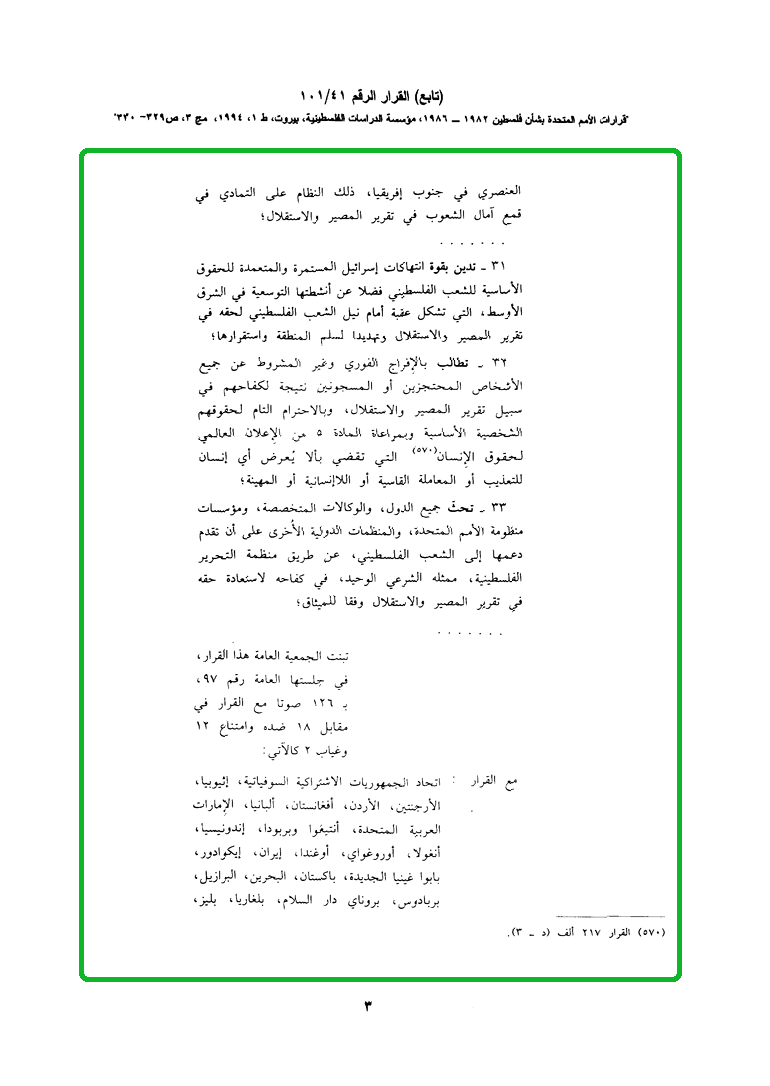 (تابع) القرار الرقم ١٠١/٤١
"قرارات الأمم المتحدة بشأن فلسطين ١٩٨٢ – ١٩٨٦، مؤسسة الدراسات الفلسطينية، بيروت، ط ١، ١٩٩٤، مج ٣، ص٣٢٩- ٣٣٠"
العنصري في جنوب إفريقيا، ذلك النظام على التمادي في
قمع آمال الشعوب في تقرير المصير والاستقلال؛
. . . . . . .
٣١ ـ تدين بقوة انتهاكات إسرائيل المستمرة والمتعمدة للحقوق
الأساسية للشعب الفلسطيني فضلا عن أنشطتها التوسعية في الشرق
الأوسط، التي تشكل عقبة أمام نيل الشعب الفلسطيني لحقه في
تقرير المصير والاستقلال وتهديدا لسلم المنطقة واستقرارها؛
٣٢ ـ تطالب بالإفراج الفوري وغير المشروط عن جميع
الأشخاص المحتجزين أو المسجونين نتيجة لكفاحهم في
سبيل تقرير المصير والاستقلال، وبالاحترام التام لحقوقهم
الشخصية الأساسية وبمراعاة المادة ٥ من الإعلان العالمي
لحقوق الإنسان(٥٧٠) التي تقضي بألا يُعرض أي إنسان
للتعذيب أو المعاملة القاسية أو اللاإنسانية أو المهينة؛
٣٣ ـ تحثّ جميع الدول، والوكالات المتخصصة، ومؤسسات
منظومة الأمم المتحدة، والمنظمات الدولية الأخرى على أن تقدم
دعمها إلى الشعب الفلسطيني، عن طريق منظمة التحرير
الفلسطينية، ممثله الشرعي الوحيد، في كفاحه لاستعادة حقه
في تقرير المصير والاستقلال وفقا للميثاق؛
. . . . . . .
تبنت الجمعية العامة هذا القرار،
في جلستها العامة رقم ٩٧،
بـ ١٢٦ صوتا مع القرار في
مقابل ١٨ ضده وامتناع ١٢
وغياب ٢ كالآتي:
مع القرار : اتحاد الجمهوريات الاشتراكية السوفياتية، إثيوبيا،
الأرجنتين، الأردن، أفغانستان، ألبانيا، الإمارات
العربية المتحدة، أنتيغوا وبربودا، إندونيسيا،
أنغولا، أوروغواي، أوغندا، إيران، إيكوادور،
بابوا غينيا الجديدة، باكستان، البحرين، البرازيل،
بربادوس، بروناي دار السلام، بلغاريا، بليز،
(٥٧٠) القرار ٢١٧ ألف (د ـ ٣).
٣